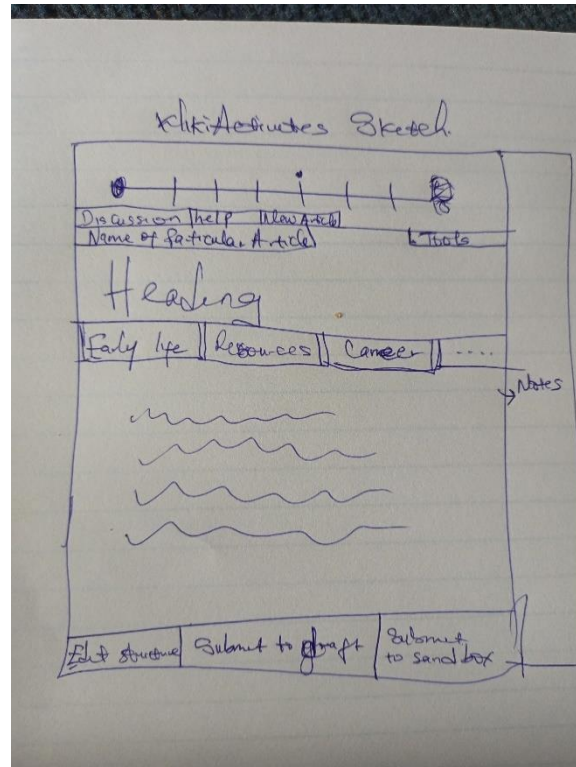 WikiActivites Sketch.
Discussion help New Article
Name of Particular Article Tools
Heading
Early life Resources Career ....
Notes
Edit structure Submit to draft Submit to sandbox